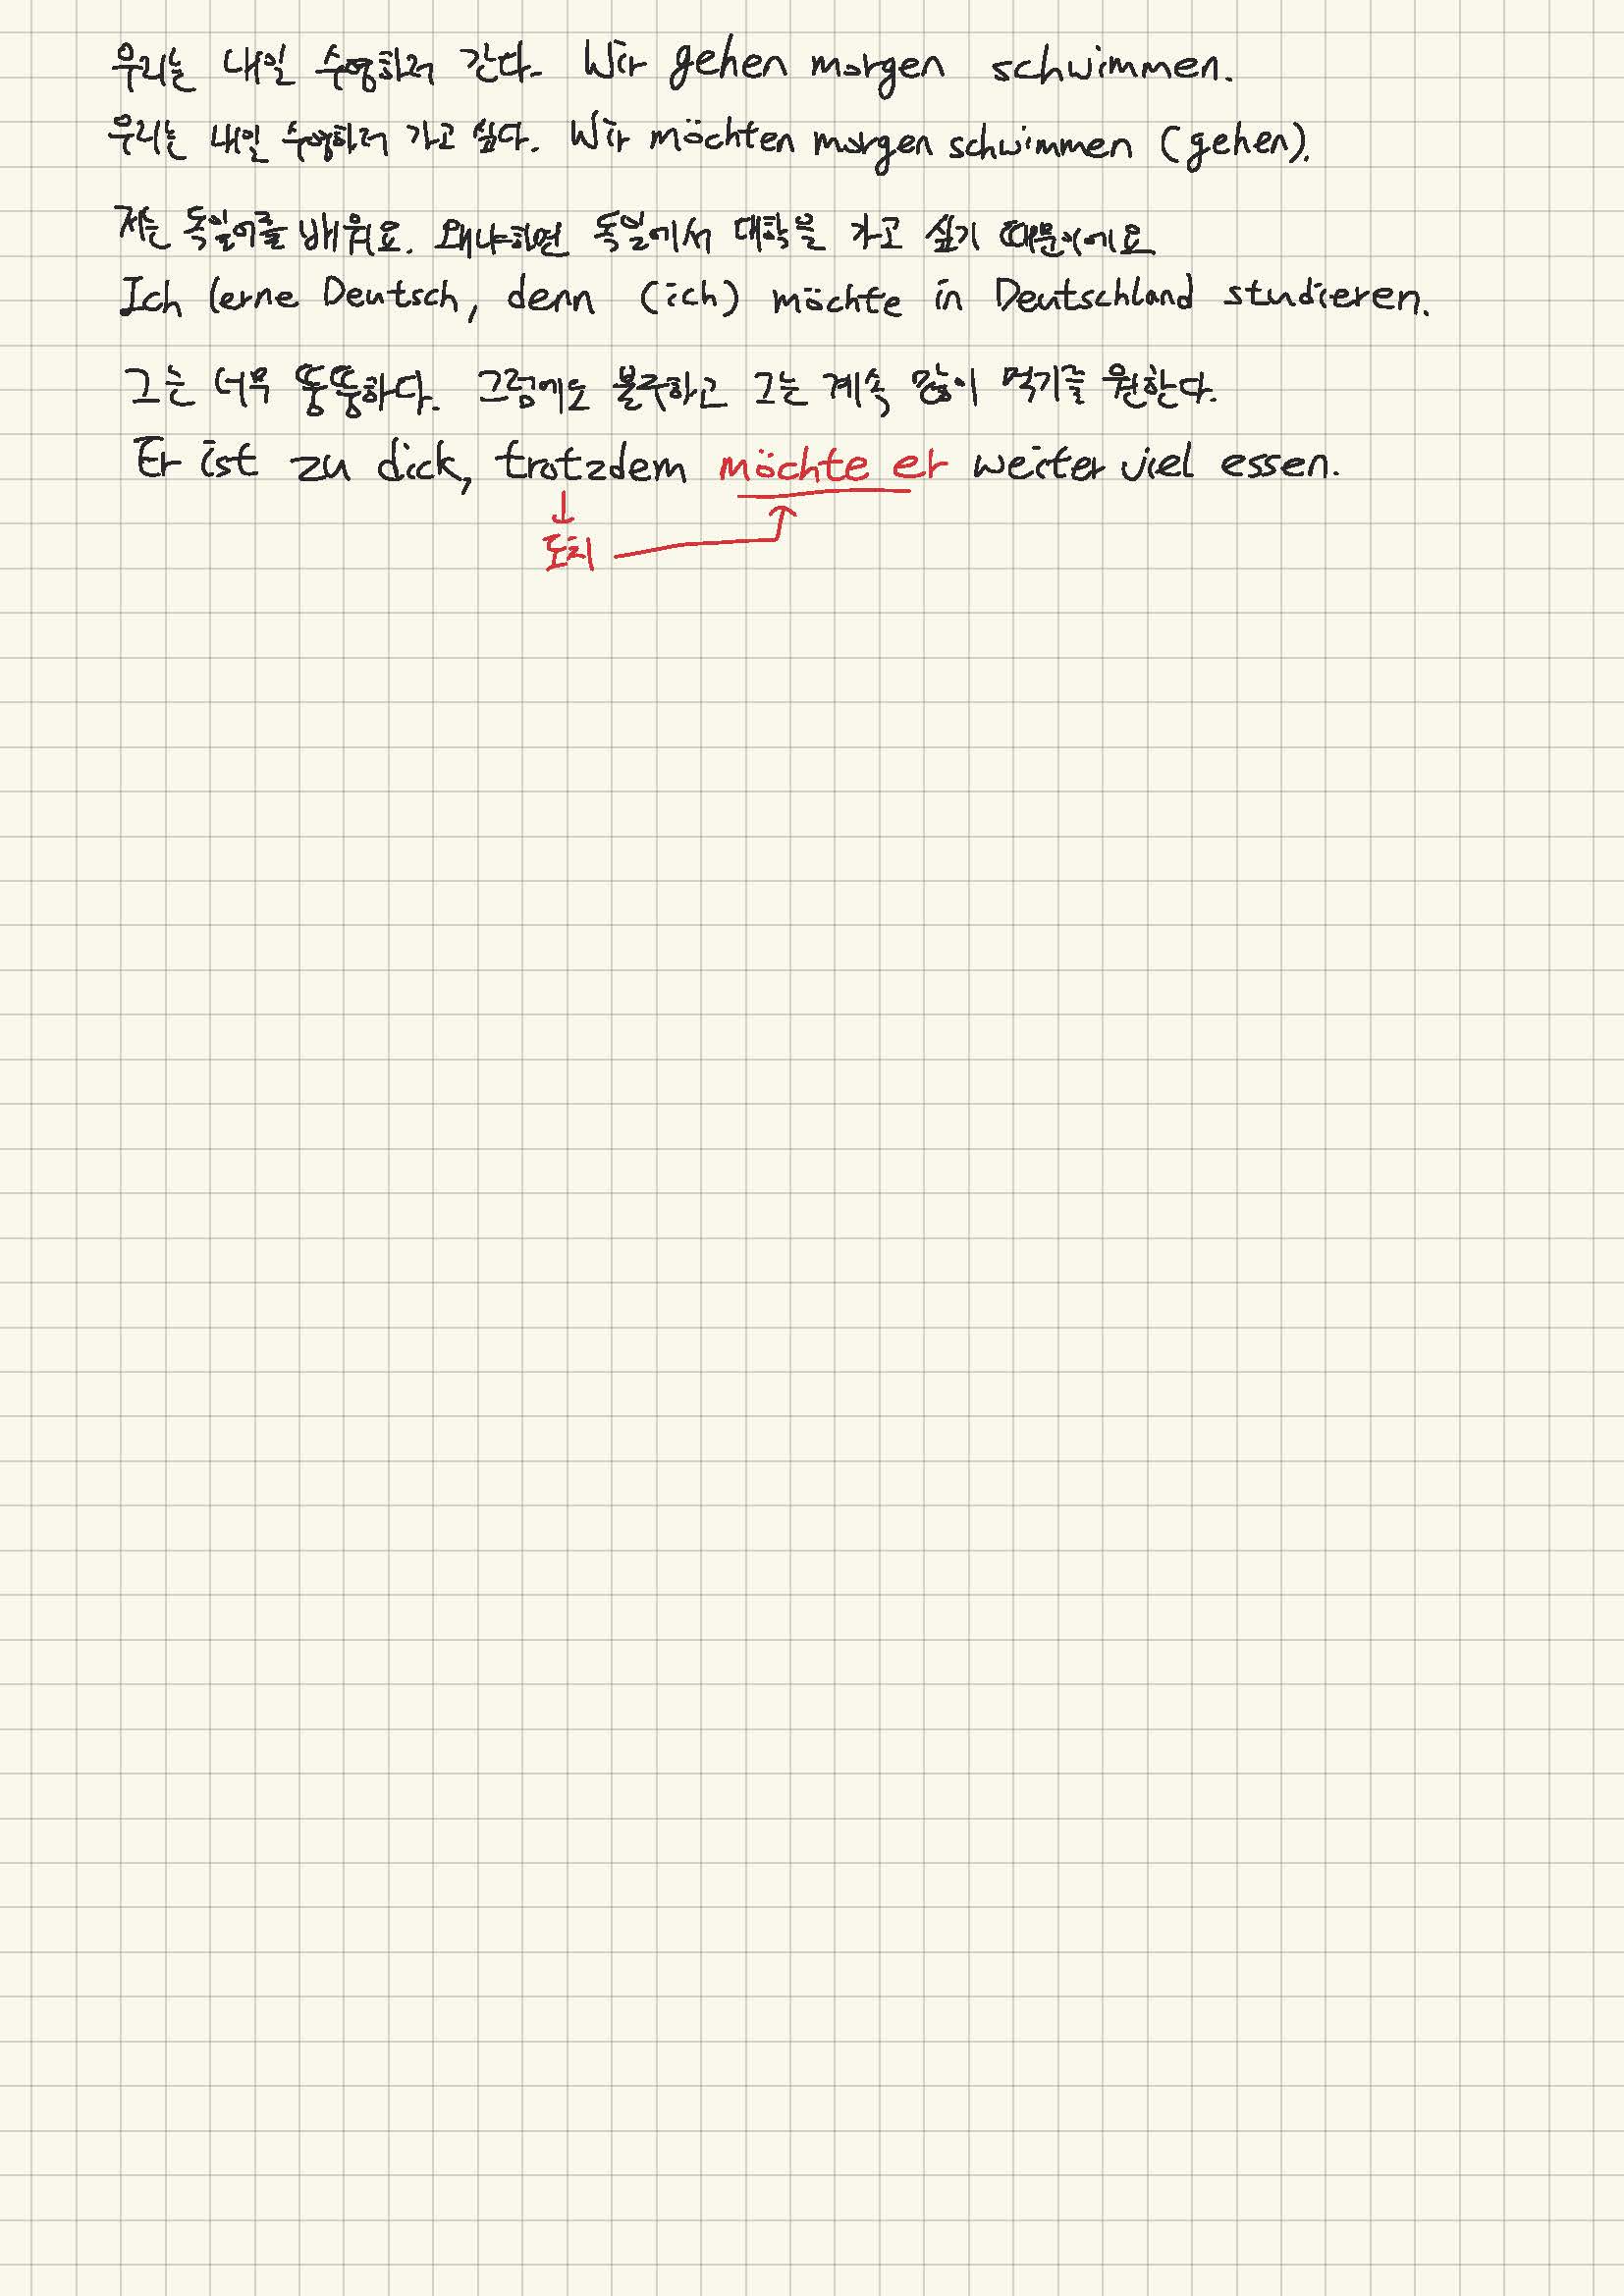 우리는 내일 수영하러 간다. Wir gehen morgen schwimmen.
우리는 내일 수영하러 가고 싶다. Wir möchten morgen schwimmen (gehen).
저는 독일어를 배워요. 왜냐하면 독일에서 대학을 가고 싶기 때문이에요
Ich lerne Deutsch, denn (ich) möchte in Deutschland studieren.
그는 너무 뚱뚱하다. 그럼에도 불구하고 그는 계속 많이 먹기를 원한다.
Er ist zu dick, trotzdem möchte er weiter viel essen.
도치